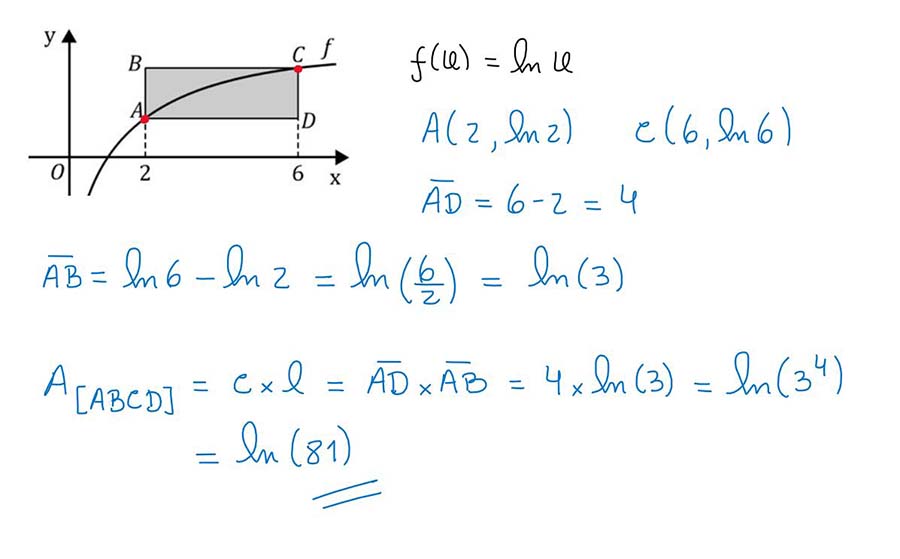 y
B C f
A
D
O 2 6 x
f(x) = ln x
A(2, ln 2) C(6, ln 6)
A̅D̅ = 6 - 2 = 4
A̅B̅ = ln 6 - ln 2 = ln(6/2) = ln(3)
A[ABCD] = c × l = A̅D̅ × A̅B̅ = 4 × ln(3) = ln(3⁴)
= ln(81)